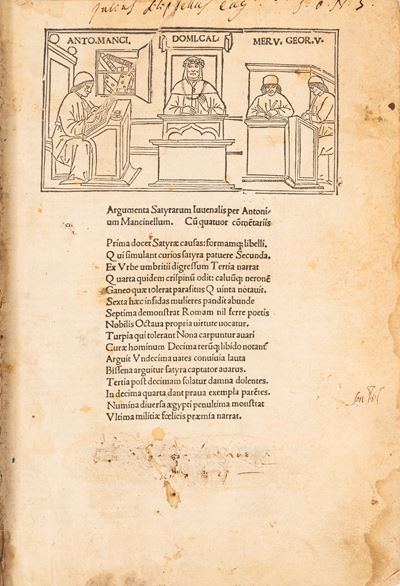 ANTO.MANCI.
DOMI.CAL.
MER V. GEOR.V.
Argumenta Satyrarum Iuuenalis per Antoni/
um Mancinellum. Cū quatuor cōmētariis
Prima docet Satyræ causas: formamq; libelli.
Qui simulant curios satyra patuere Secunda.
Ex Vrbe umbritii digressum Tertia narrat
Quarta quidem crispinū odit: caluūq; neronē
Ganeo quæ tolerat parasitus Quinta notauit.
Sexta hæc infidas mulieres pandit abunde
Septima demonstrat Romam nil ferre poetis
Nobilis Octaua propria uirtute uocatur.
Turpia qui tolerant Nona carpuntur auari
Curæ hominum Decima rerūq; libido notant̄
Arguit Vndecima uates conuiuia lauta
Bissena arguitur satyra captator auarus.
Tertia post decimam solatur damna dolentes.
In decima quarta dant praua exempla parētes.
Numina diuersa ægypti penultima monstrat
Vltima militiæ fœlicis præmia narrat.